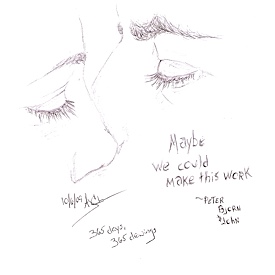 Maybe
we could
make this work
~ Peter
Bjorn
& John
10/6/09
365 days,
365 drawings